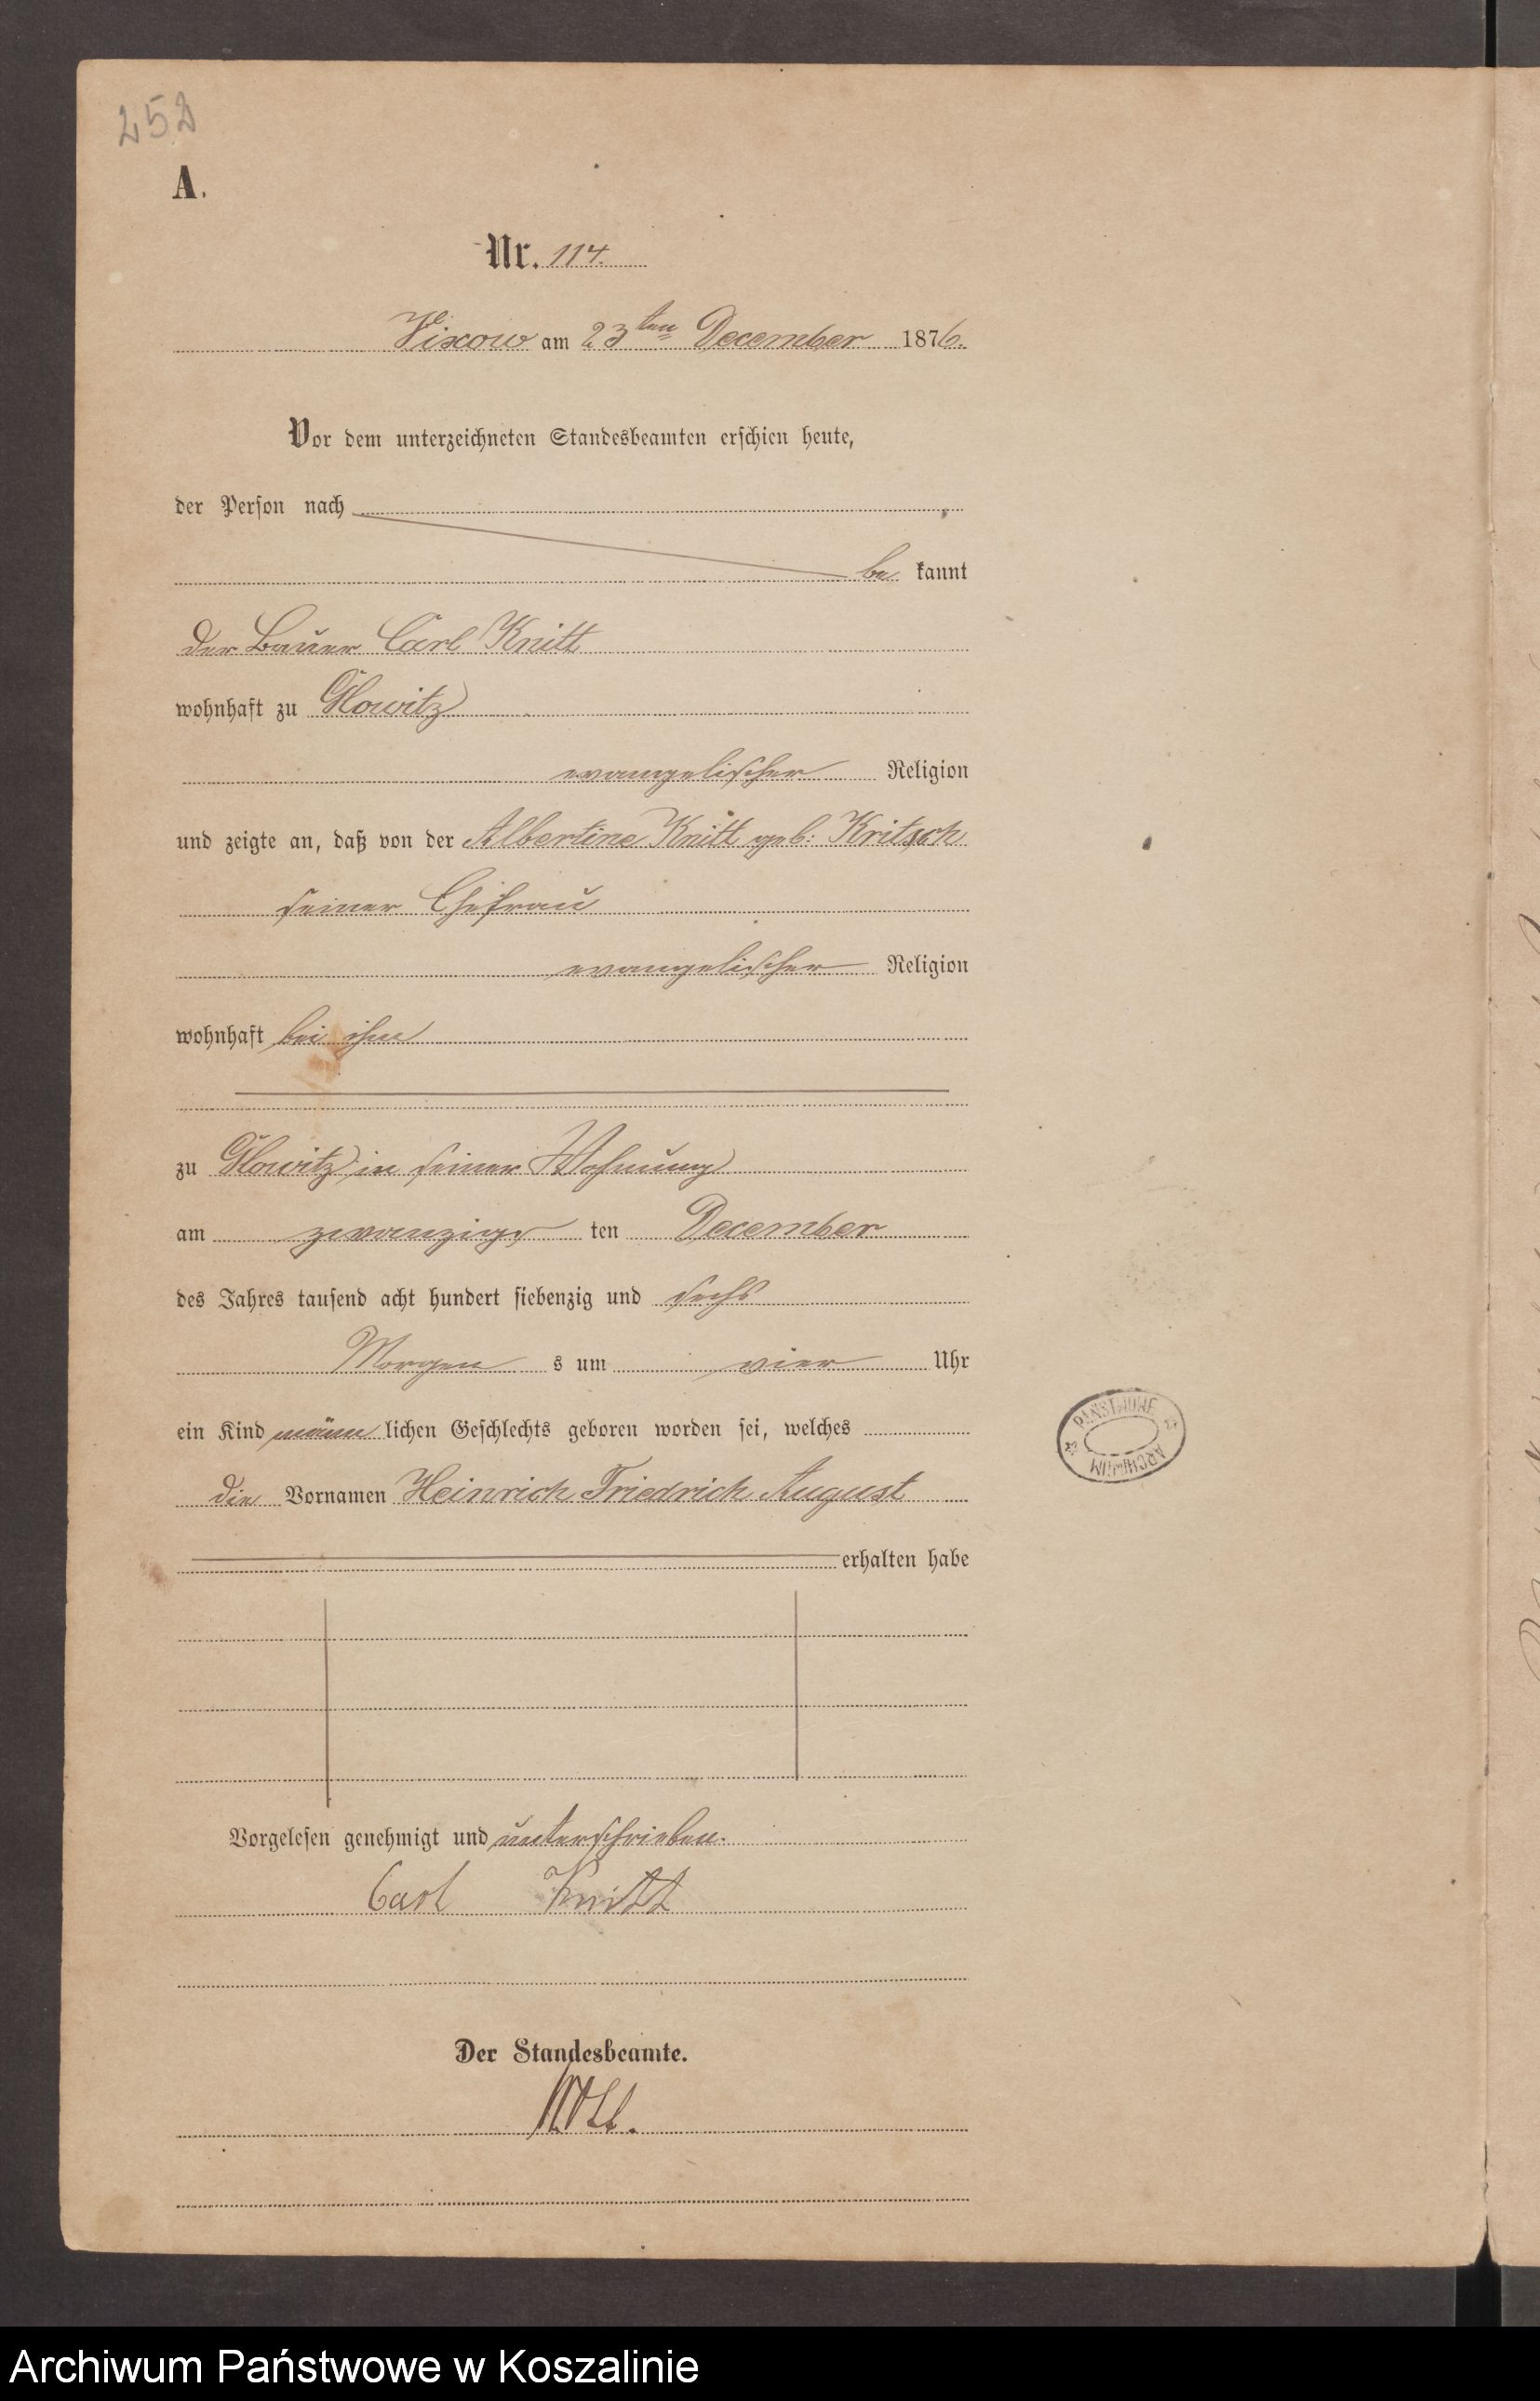 252
A.
Nr. 114.
Vixow am 23ten December 1876.
Vor dem unterzeichneten Standesbeamten erschien heute,
der Person nach
be kannt
der Bauer Carl Knitt
wohnhaft zu Glowitz
evangelischer Religion
und zeigte an, daß von der Albertine Knitt geb: Kritsch
seiner Ehefrau
evangelischer Religion
wohnhaft bei ihm
zu Glowitz in seiner Wohnung
am zwanzigs ten December
des Jahres tausend acht hundert siebenzig und sechs
Morgen s um vier Uhr
ein Kind männ lichen Geschlechts geboren worden sei, welches
die Vornamen Heinrich Friedrich August
erhalten habe
Vorgelesen genehmigt und unterschrieben.
Carl Knitt
Der Standesbeamte.
PAŃSTWOWE
ARCHIWUM
Archiwum Państwowe w Koszalinie